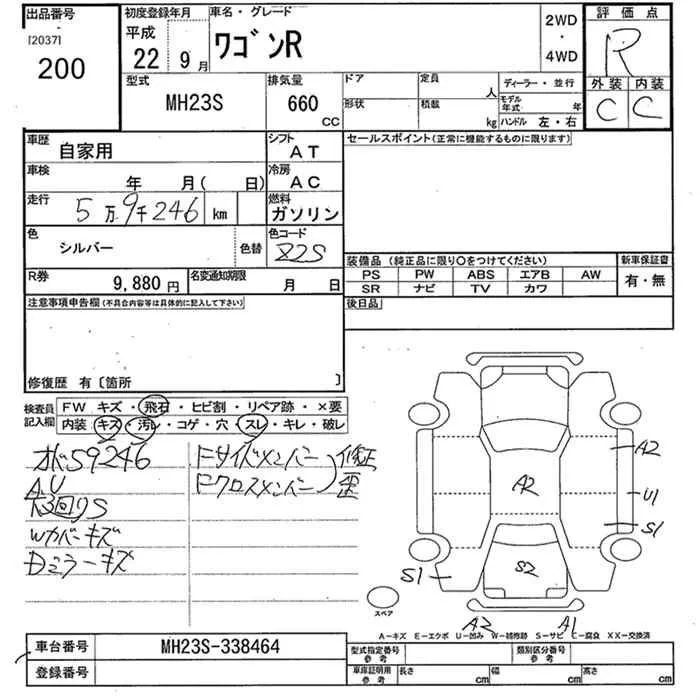 出品番号
[2037]
200
初度登録年月
平成
22 9月
車名・グレード
ワゴンR
2WD
・
4WD
評価点
R
外装 内装
C C
型式
MH23S
排気量
660 CC
ドア
形状
定員 人
積載 kg
ディーラー・並行
モデル年式 年
ハンドル 左・右
車歴
自家用
シフト
AT
車検
年 月( 日)
冷房
AC
走行
5万9千246 km
燃料
ガソリン
色
シルバー
色替
色コード
Z2S
R券
9,880 円
名変通知期限
月 日
セールスポイント(正常に機能するものに限ります)
装備品 (純正品に限り○をつけてください)
新車保証書
PS PW ABS エアB AW
SR ナビ TV カワ
有・無
後日品
注意事項申告欄(不具合内容等は具体的に記入して下さい)
修復歴 有〔箇所 〕
検査員記入欄
FW キズ・飛石・ヒビ割・リペア跡・×要
内装・キズ・汚レ・コゲ・穴・スレ・キレ・破レ
オド59246
AU
Wカバーキズ
Dミラーキズ
Fサイドメンバー
Fクロスメンバー
修正
歪
A2
U1
S1
A2
S2
S1
A2 A1
スペア
A-キズ E-エクボ U-凹み W-補修跡 S-サビ C-腐食 XX-交換済
車台番号
MH23S-338464
登録番号
型式指定番号
参考
類別区分番号
参考
車庫証明用
参考
長さ cm
幅 cm
高さ cm